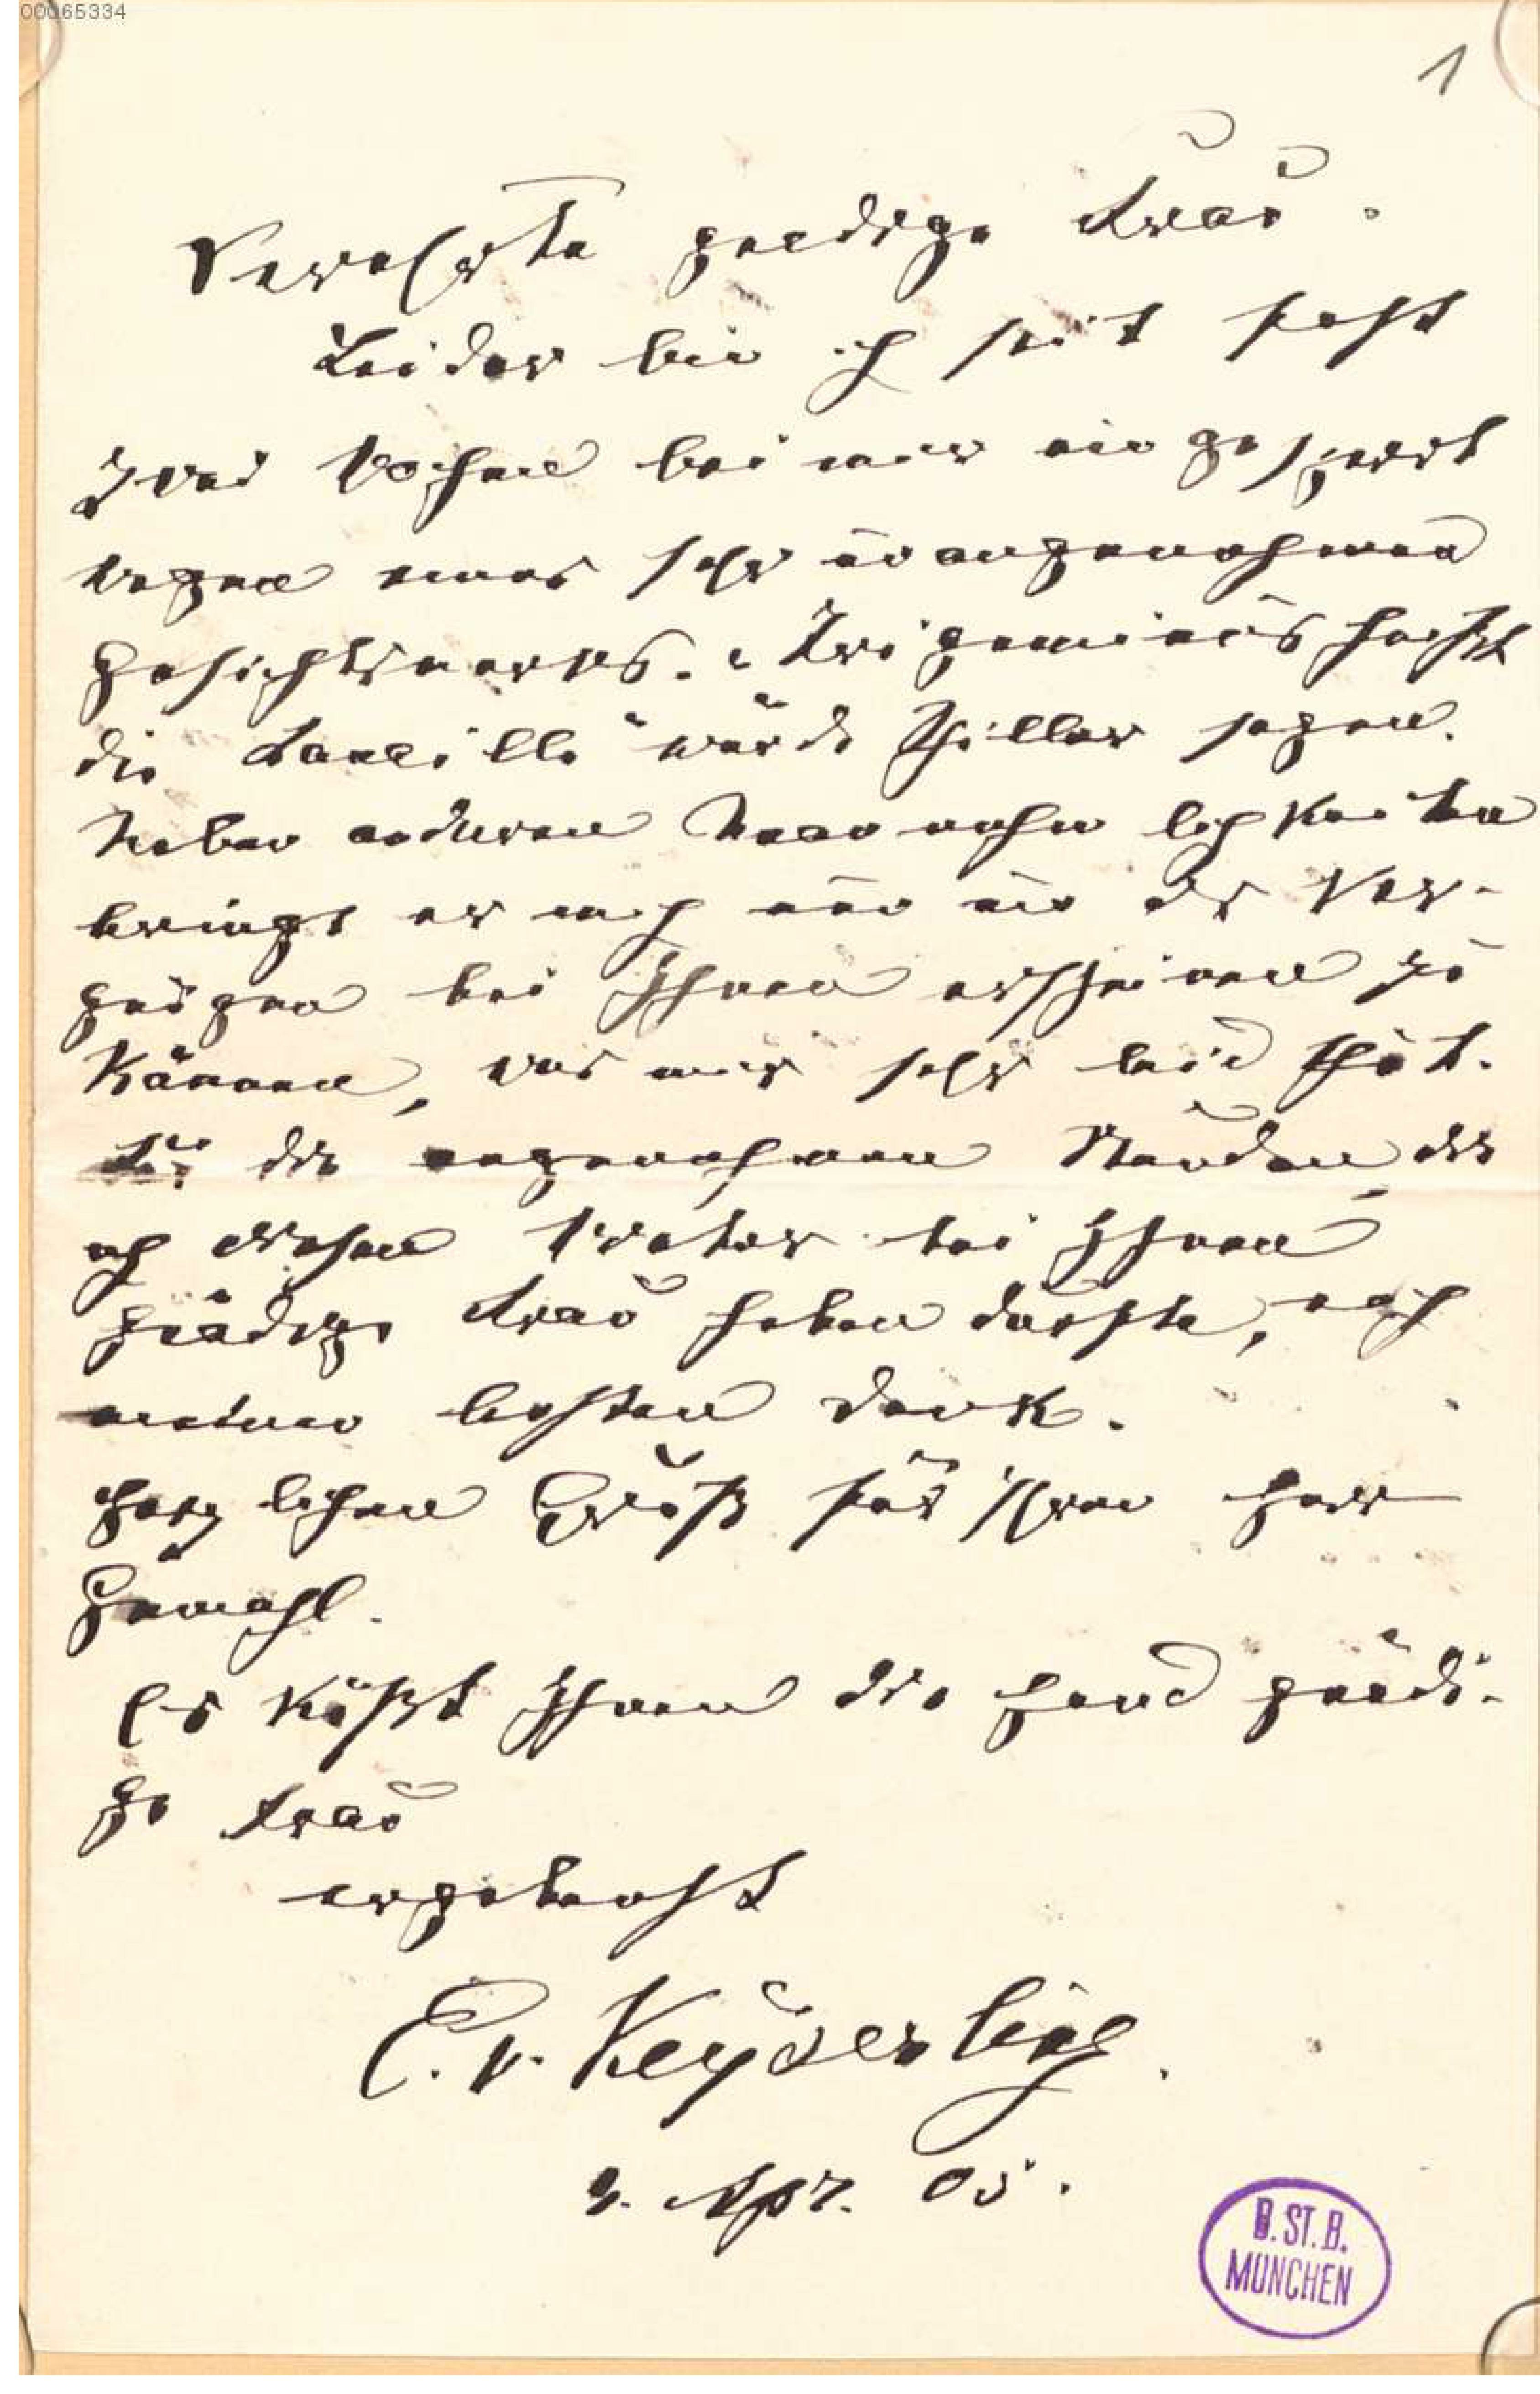 00065334
1
Verehrte gnädige Frau.
Leider bin ich seit fast
zwei Wochen bei mir eingesperrt
wegen eines sehr unangenehmen
Gesichtsnervs. „Trigeminus heißt
die Canaille“ würde Schiller sagen.
Neben anderen Unannehmlichkeiten
bringt er mich nun um das Ver-
gnügen bei Ihnen erscheinen zu
können, was mir sehr leid thut.
Für die angenehmen Stunden, die
ich diesen Winter bei Ihnen
gnädige Frau haben durfte, noch
meinen besten Dank.
Herzlichen Gruß für Ihren Herrn
Gemahl.
Es küßt Ihnen die Hand gnädi-
ge Frau
ergebenst
E. v. Keyserling.
2. Apr. 05.
B. ST. B.
MÜNCHEN